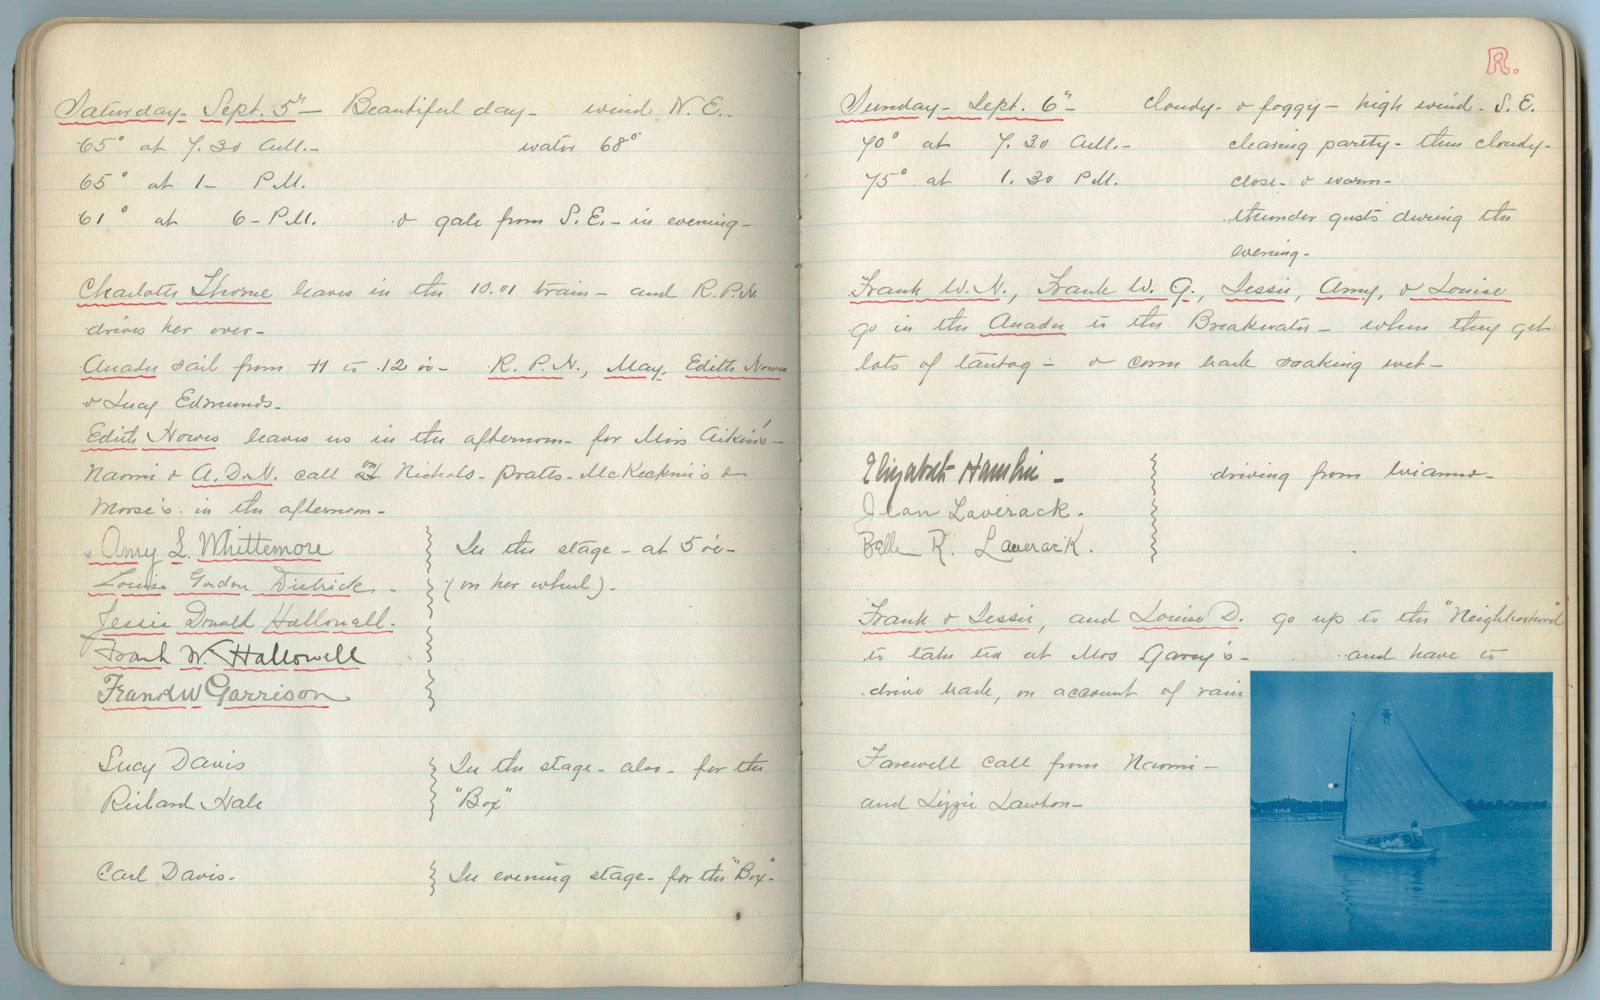 Saturday- Sept. 5th- Beautiful day- wind N.E..
65° at 7.30 A.M.- water 68°
65° at 1- P.M.
61° at 6- P.M. & gale from S.E.- in evening-
Charlotte Thorne leaves in the 10.01 train- and R.P.N.
drives her over-
Anadu sail from 11 to 12 00- R.P.N., May, Edith Howes
& Lucy Edmunds-
Edith Howes leaves us in the afternoon- for Miss Aitkin's-
Naomi & A.D.N. call on Nichols- Prates- McKecknie's &
Morse's. in the afternoon-
Amy L. Whittemore In the stage- at 5 00-
Louise Gordon Dietrick- (on her wheel)-
Jessie Donald Hallowell.
Frank W. Hallowell
Frank W Garrison
Lucy Davis In the stage- also- for the
Richard Hale "Box"
Carl Davis- In evening stage- for the "Box"-
R.
Sunday- Sept. 6th- Cloudy- & foggy- high wind- S.E.
70° at 7.30 A.M.- clearing partly- then cloudy-
75° at 1.30 P.M. close- & warm-
thunder gusts during the
evening-
Frank W.N., Frank W.G., Jessie, Amy, & Louise
go in the Anadu to the Breakwater- where they get
lots of tautog- & come back soaking wet-
Elizabeth Hamlin- driving from Wianno-
Jean Laverack.
Belle R. Laverack.
Frank & Jessie, and Louise D. go up to the "Neighborhood"
to take tea at Mrs - and have to
drive back, on account of rain
Farewell call from Naomi-
and Lizzie Lawton-